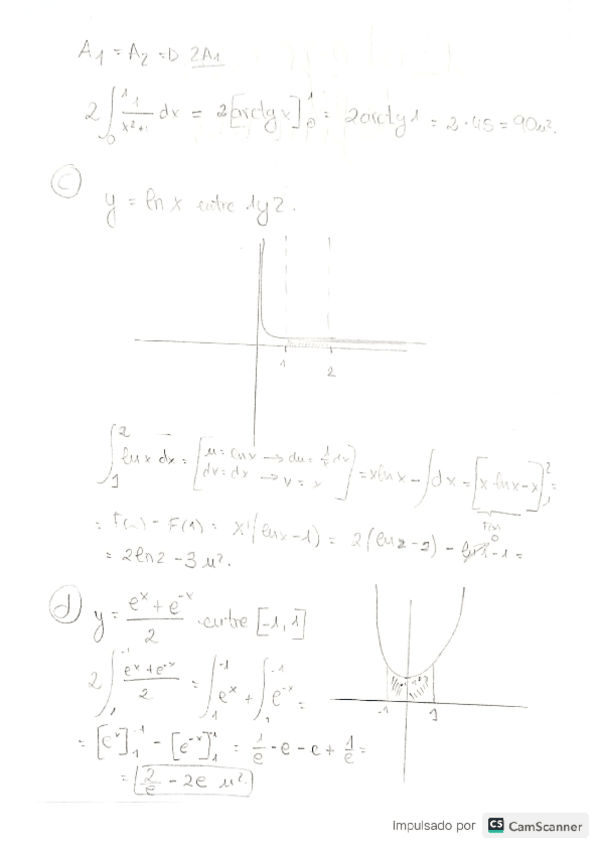 A1 = A2 => 2A1
2∫₀¹ 1/(x²+1) dx = 2[arctg x]₀¹ = 2arctg1 = 2·45 = 90u².
c) y = ln x entre 1 y 2.
1 2
∫₁² ln x dx = [u = ln x → du = 1/x dx
dv = dx → v = x] = x ln x - ∫dx = [x·ln x - x]₁² =
F(x)
= F(2) - F(1) = x(ln x - 1) = 2(ln 2 - 2) - ln 1 - 1 =
0
= 2ln2 - 3 u².
d) y = (eˣ + e⁻ˣ)/2 entre [-1, 1]
2∫₁⁻¹ (eˣ + e⁻ˣ)/2 = ∫₁⁻¹ eˣ + ∫₁⁻¹ e⁻ˣ =
-1 1
= [eˣ]₁⁻¹ - [e⁻ˣ]₁⁻¹ = 1/e - e - e + 1/e =
= 2/e - 2e u².
Impulsado por CS CamScanner